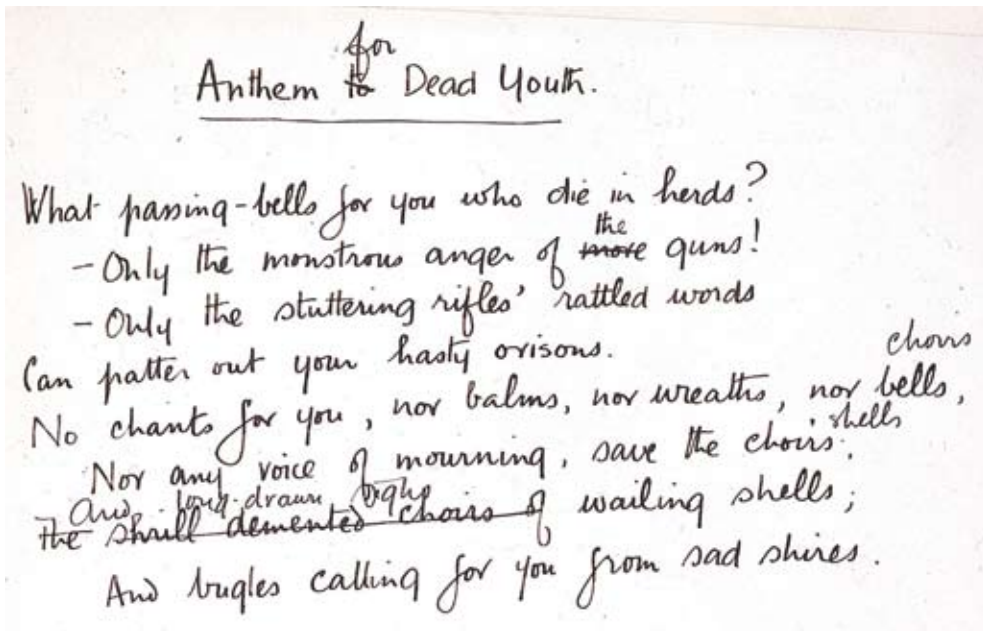 for
Anthem to Dead Youth.
What passing-bells for you who die in herds?
the
- Only the monstrous anger of more guns!
- Only the stuttering rifles' rattled words
Can patter out your hasty orisons.
choirs
No chants for you, nor balms, nor wreaths, nor bells,
shells
Nor any voice of mourning, save the choirs,
And long-drawn sighs
the shrill demented choirs of wailing shells;
And bugles calling for you from sad shires.